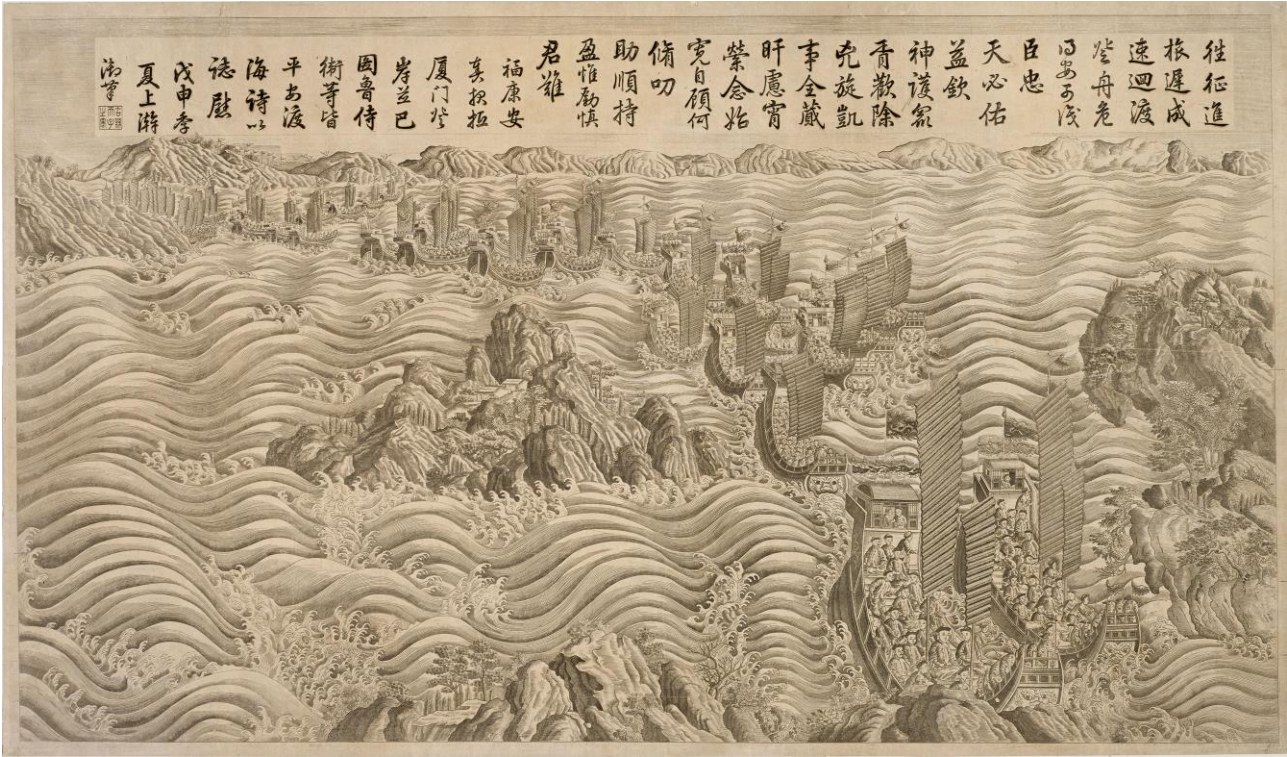 徃征進
旅遲成
速迴渡
登舟危
得安
臣忠
天必佑
益欽
神護眾
胥歡除
兇旋凱
事全蕆
旰慮宵
縈念始
寛自顧何
脩叨
助順持
盈惟勵慎
君難
福康安
奏報抵
厦门登
岸並巴
圖魯侍
衛等皆
平安渡
海詩以
誌慰
戊申季
夏上澣
御筆